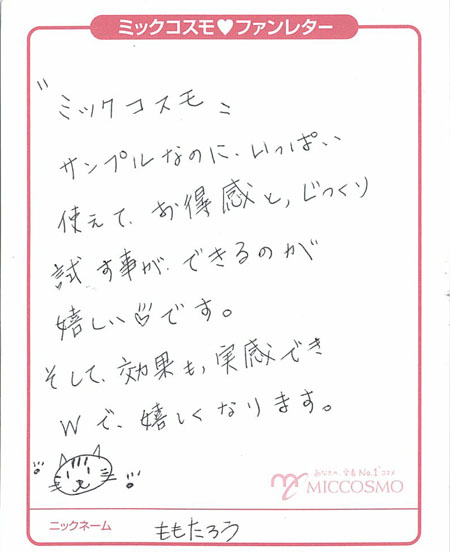 ミックコスモ♥ファンレター
"ミックコスモ"
サンプルなのに、いっぱい
使えて、お得感と、じっくり
試す事が、できるのが
嬉しい♡です。
そして、効果も、実感でき
Wで、嬉しくなります。
あなたの、定番No.1コスメ
MICCOSMO
ニックネーム
ももたろう